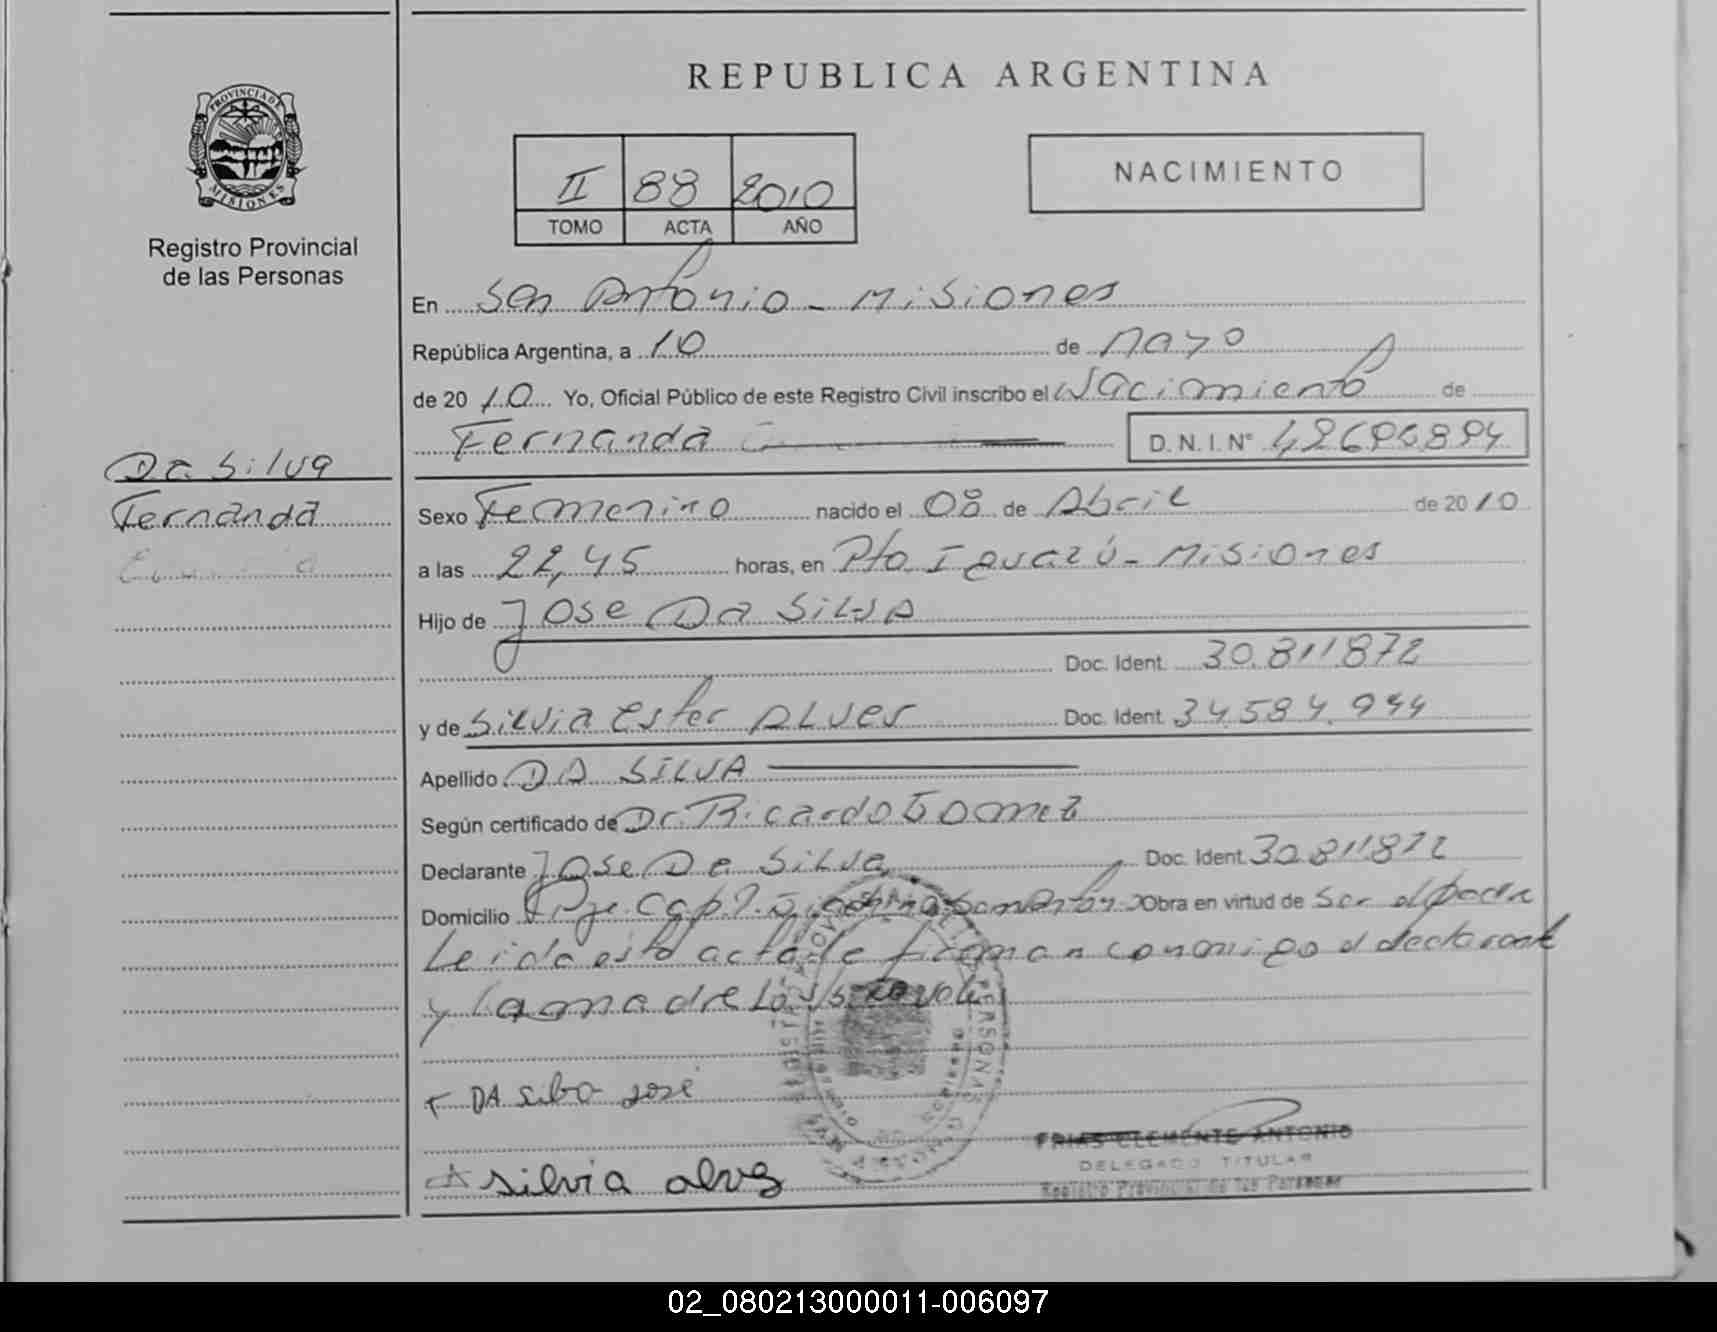 REPUBLICA ARGENTINA
PROVINCIA DE MISIONES
Registro Provincial
de las Personas
II 88 2010
TOMO ACTA AÑO
NACIMIENTO
En San Antonio - Misiones
República Argentina, a 10 de Mayo
de 2010 Yo, Oficial Público de este Registro Civil inscribo el Nacimiento de
Fernanda D.N.I. Nº
Da Silva
Fernanda
Sexo Femenino nacido el 08 de Abril de 2010
a las 22,45 horas, en Pto. Iguazú - Misiones
Hijo de Jose Da Silva
Doc. Ident. 30.811872
y de Silvia Ester Alves Doc. Ident. 34.584.944
Apellido DA SILVA
Según certificado de Dr. Ricardo Gomez
Declarante Jose Da Silva Doc. Ident. 30.811.872
Domicilio Obra en virtud de Ser el padre
Leida esta acta la firman conmigo el declarante
y la madre
DA Silva José
Silvia alves
FRIAS CLEMENTE ANTONIO
DELEGADO TITULAR
Registro Provincial de las Personas
02_080213000011-006097